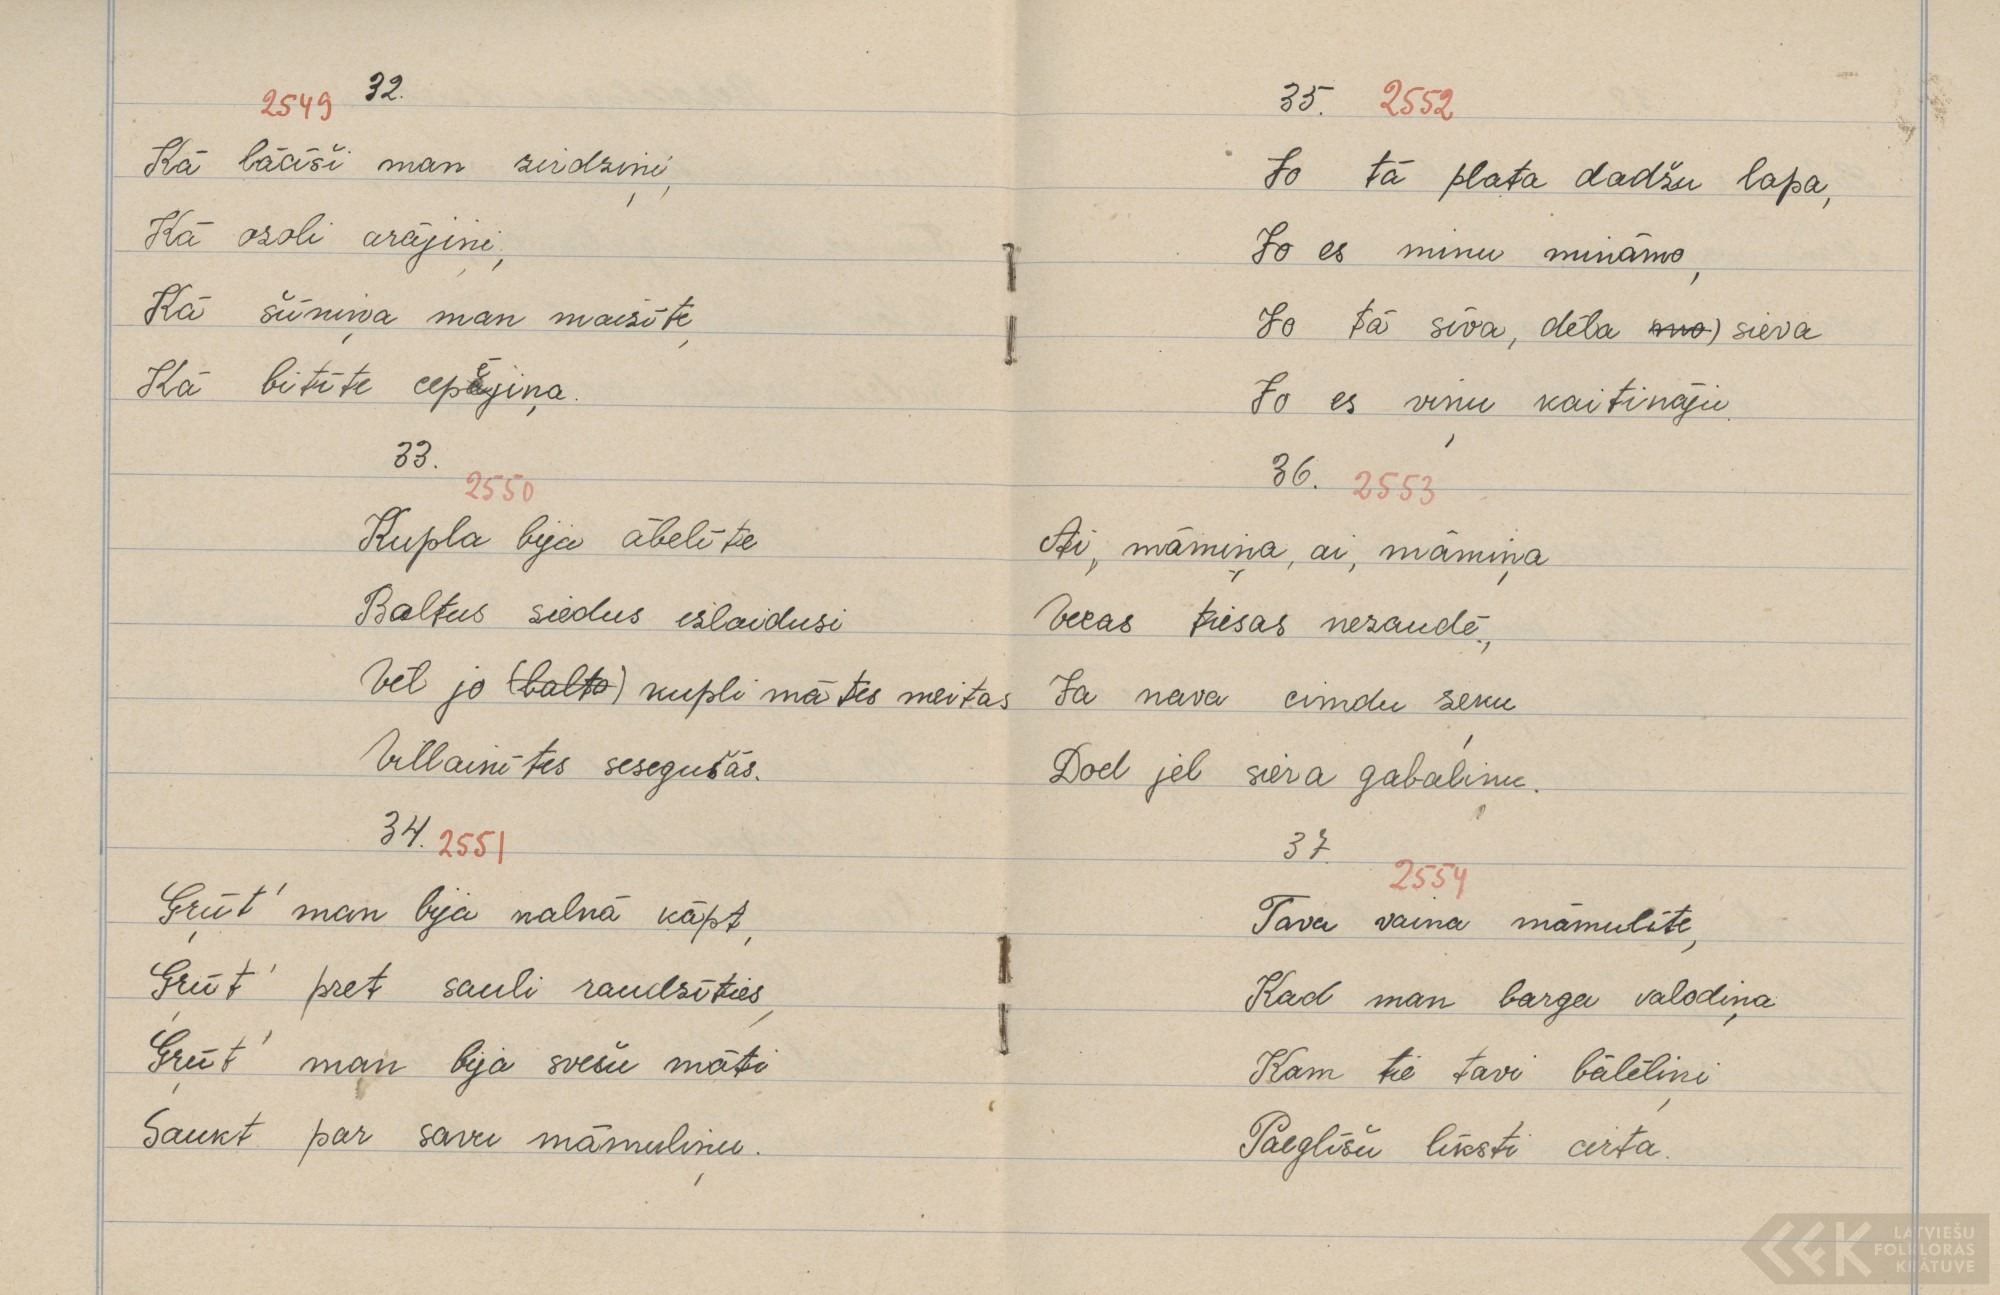 2549 32.
Kā lācīši man zirdziņi,
Kā ozoli arājiņi,
Kā šūniņa man maizīte,
Kā bitīte cepējiņa.
33.
2550
Kupla bija ābelīte
Baltus ziedus izlaidusi
Vēl jo (balta) kupli mātes meitas
Villainītes sesegušās.
34. 2551
Grūt' man bija kalnā kāpt,
Grūt' pret sauli raudzīties,
Grūt' man bija svešu māti
Saukt par savu māmuliņu.
35. 2552
Jo tā plata dadžu lapa,
Jo es minu mināmo,
Jo tā sīva, dēla sieva
Jo es viņu kaitināju.
36. 2553
Ai, māmiņa, ai, māmiņa
Vecas tiesas nezaudē,
Ja nava cimdu zeķu
Dod jel siera gabaliņu.
37.
2554
Tava vaina māmulīte,
Kad man barga valodiņa
Kam tie tavi bālēliņi
Paeglīšu līksti cirta.
LATVIEŠU
FOLKLORAS
KRĀTUVE